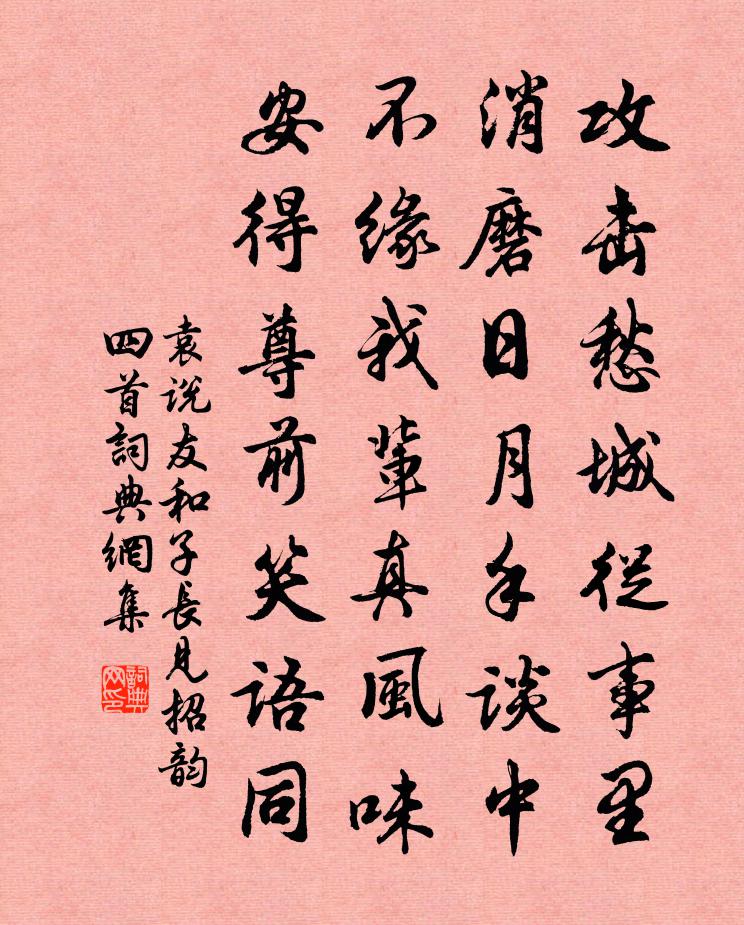 攻击愁城從事里
消磨日月手談中
不緣我輩真風味
安得尊前笑語同
袁説友和子長見招韵
四首詞典網集
詞典网印